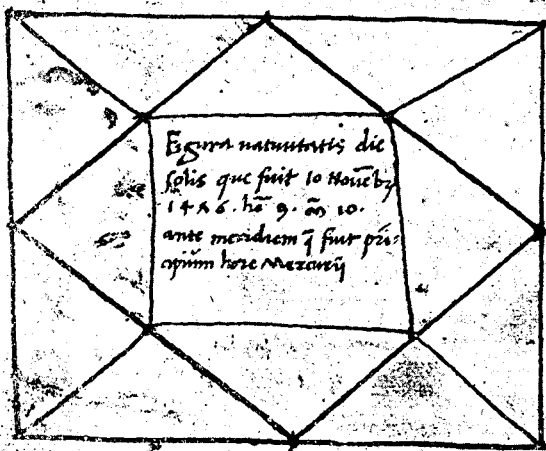 Figura natiuitatis die
solis que fuit 10 Nouēbr
1476. ho᷒ 9. m̄ 10.
ante meridiem q̄ fuit prī-
cipium hore Mercurij